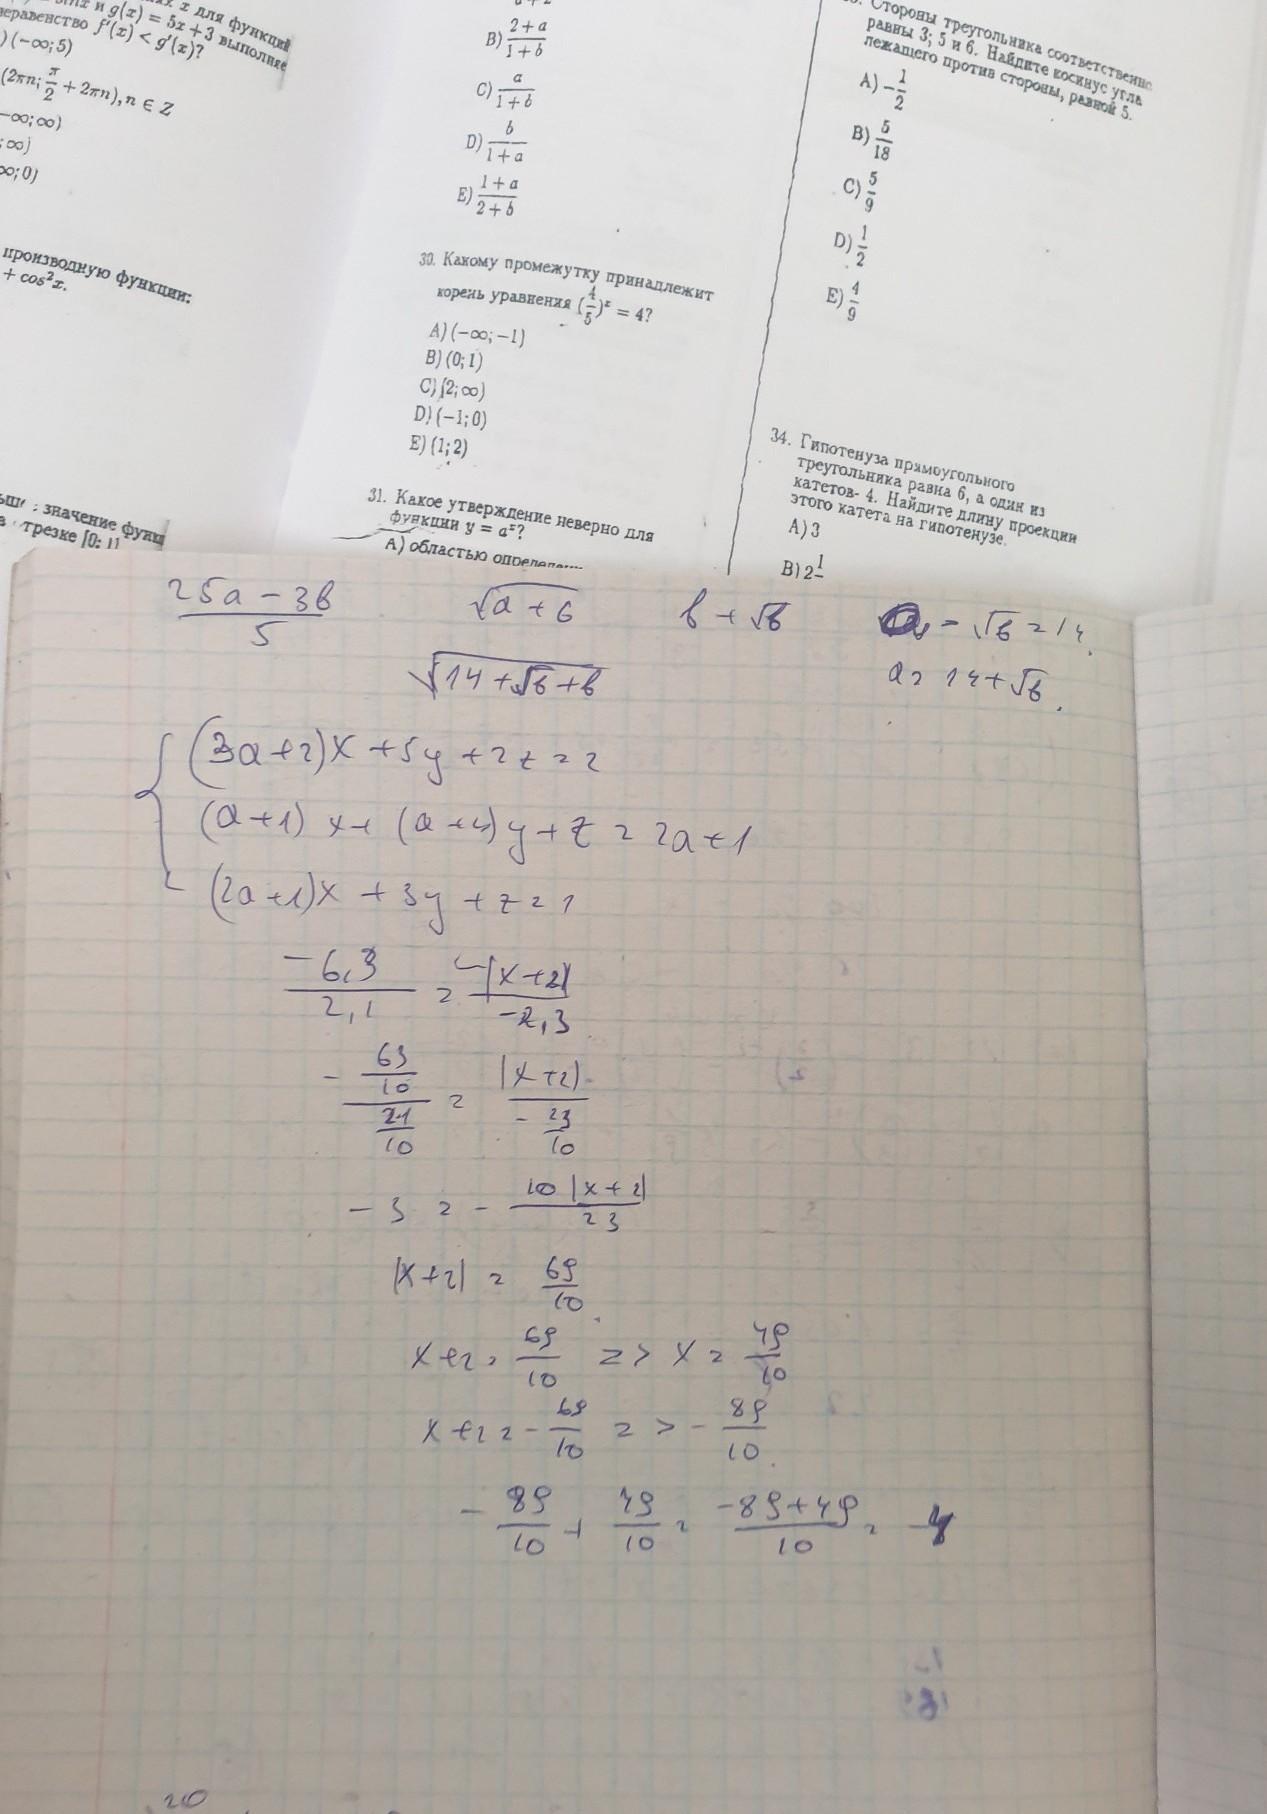 x для функций
и g(x) = 5x + 3 выполняе
неравенство f'(x) < g'(x)?
) (-∞; 5)
(2πn; π/2 + 2πn), n ∈ Z
-∞; ∞)
; ∞)
∞; 0)
производную функции:
+ cos²x.
значение функц
трезке [0; 1]
B) (2 + a)/(1 + b)
C) a/(1 + b)
D) b/(1 + a)
E) (1 + a)/(2 + b)
30. Какому промежутку принадлежит
корень уравнения (4/5)^x = 4?
A) (-∞; -1)
B) (0; 1)
C) [2; ∞)
D) (-1; 0)
E) (1; 2)
31. Какое утверждение неверно для
функции y = a^x?
A) областью
Стороны треугольника соответственно
равны 3; 5 и 6. Найдите косинус угла
лежащего против стороны, равной 5.
A) -1/2
B) 5/18
C) 5/9
D) 1/2
E) 4/9
34. Гипотенуза прямоугольного
треугольника равна 6, а один из
катетов- 4. Найдите длину проекции
этого катета на гипотенузе.
A) 3
B) 2
(25a - 3b)/5 √(a + b) b + √b - √b = 14
√(14 + √b + b) a = 14 + √b
(3a+2)x + 5y + 2z = 2
(a+1)x + (a+4)y + z = 2a+1
(2a+1)x + 3y + z = 1
-6,3/2,1 = -|x+2|/-2,3
-(63/10)/(21/10) = |x+2|/(-23/10)
-3 = -10|x+2|/23
|x+2| = 69/10
x+2 = 69/10 => x = 49/10
x+2 = -69/10 => -89/10
-89/10 + 49/10 = (-89+49)/10 = -4
20